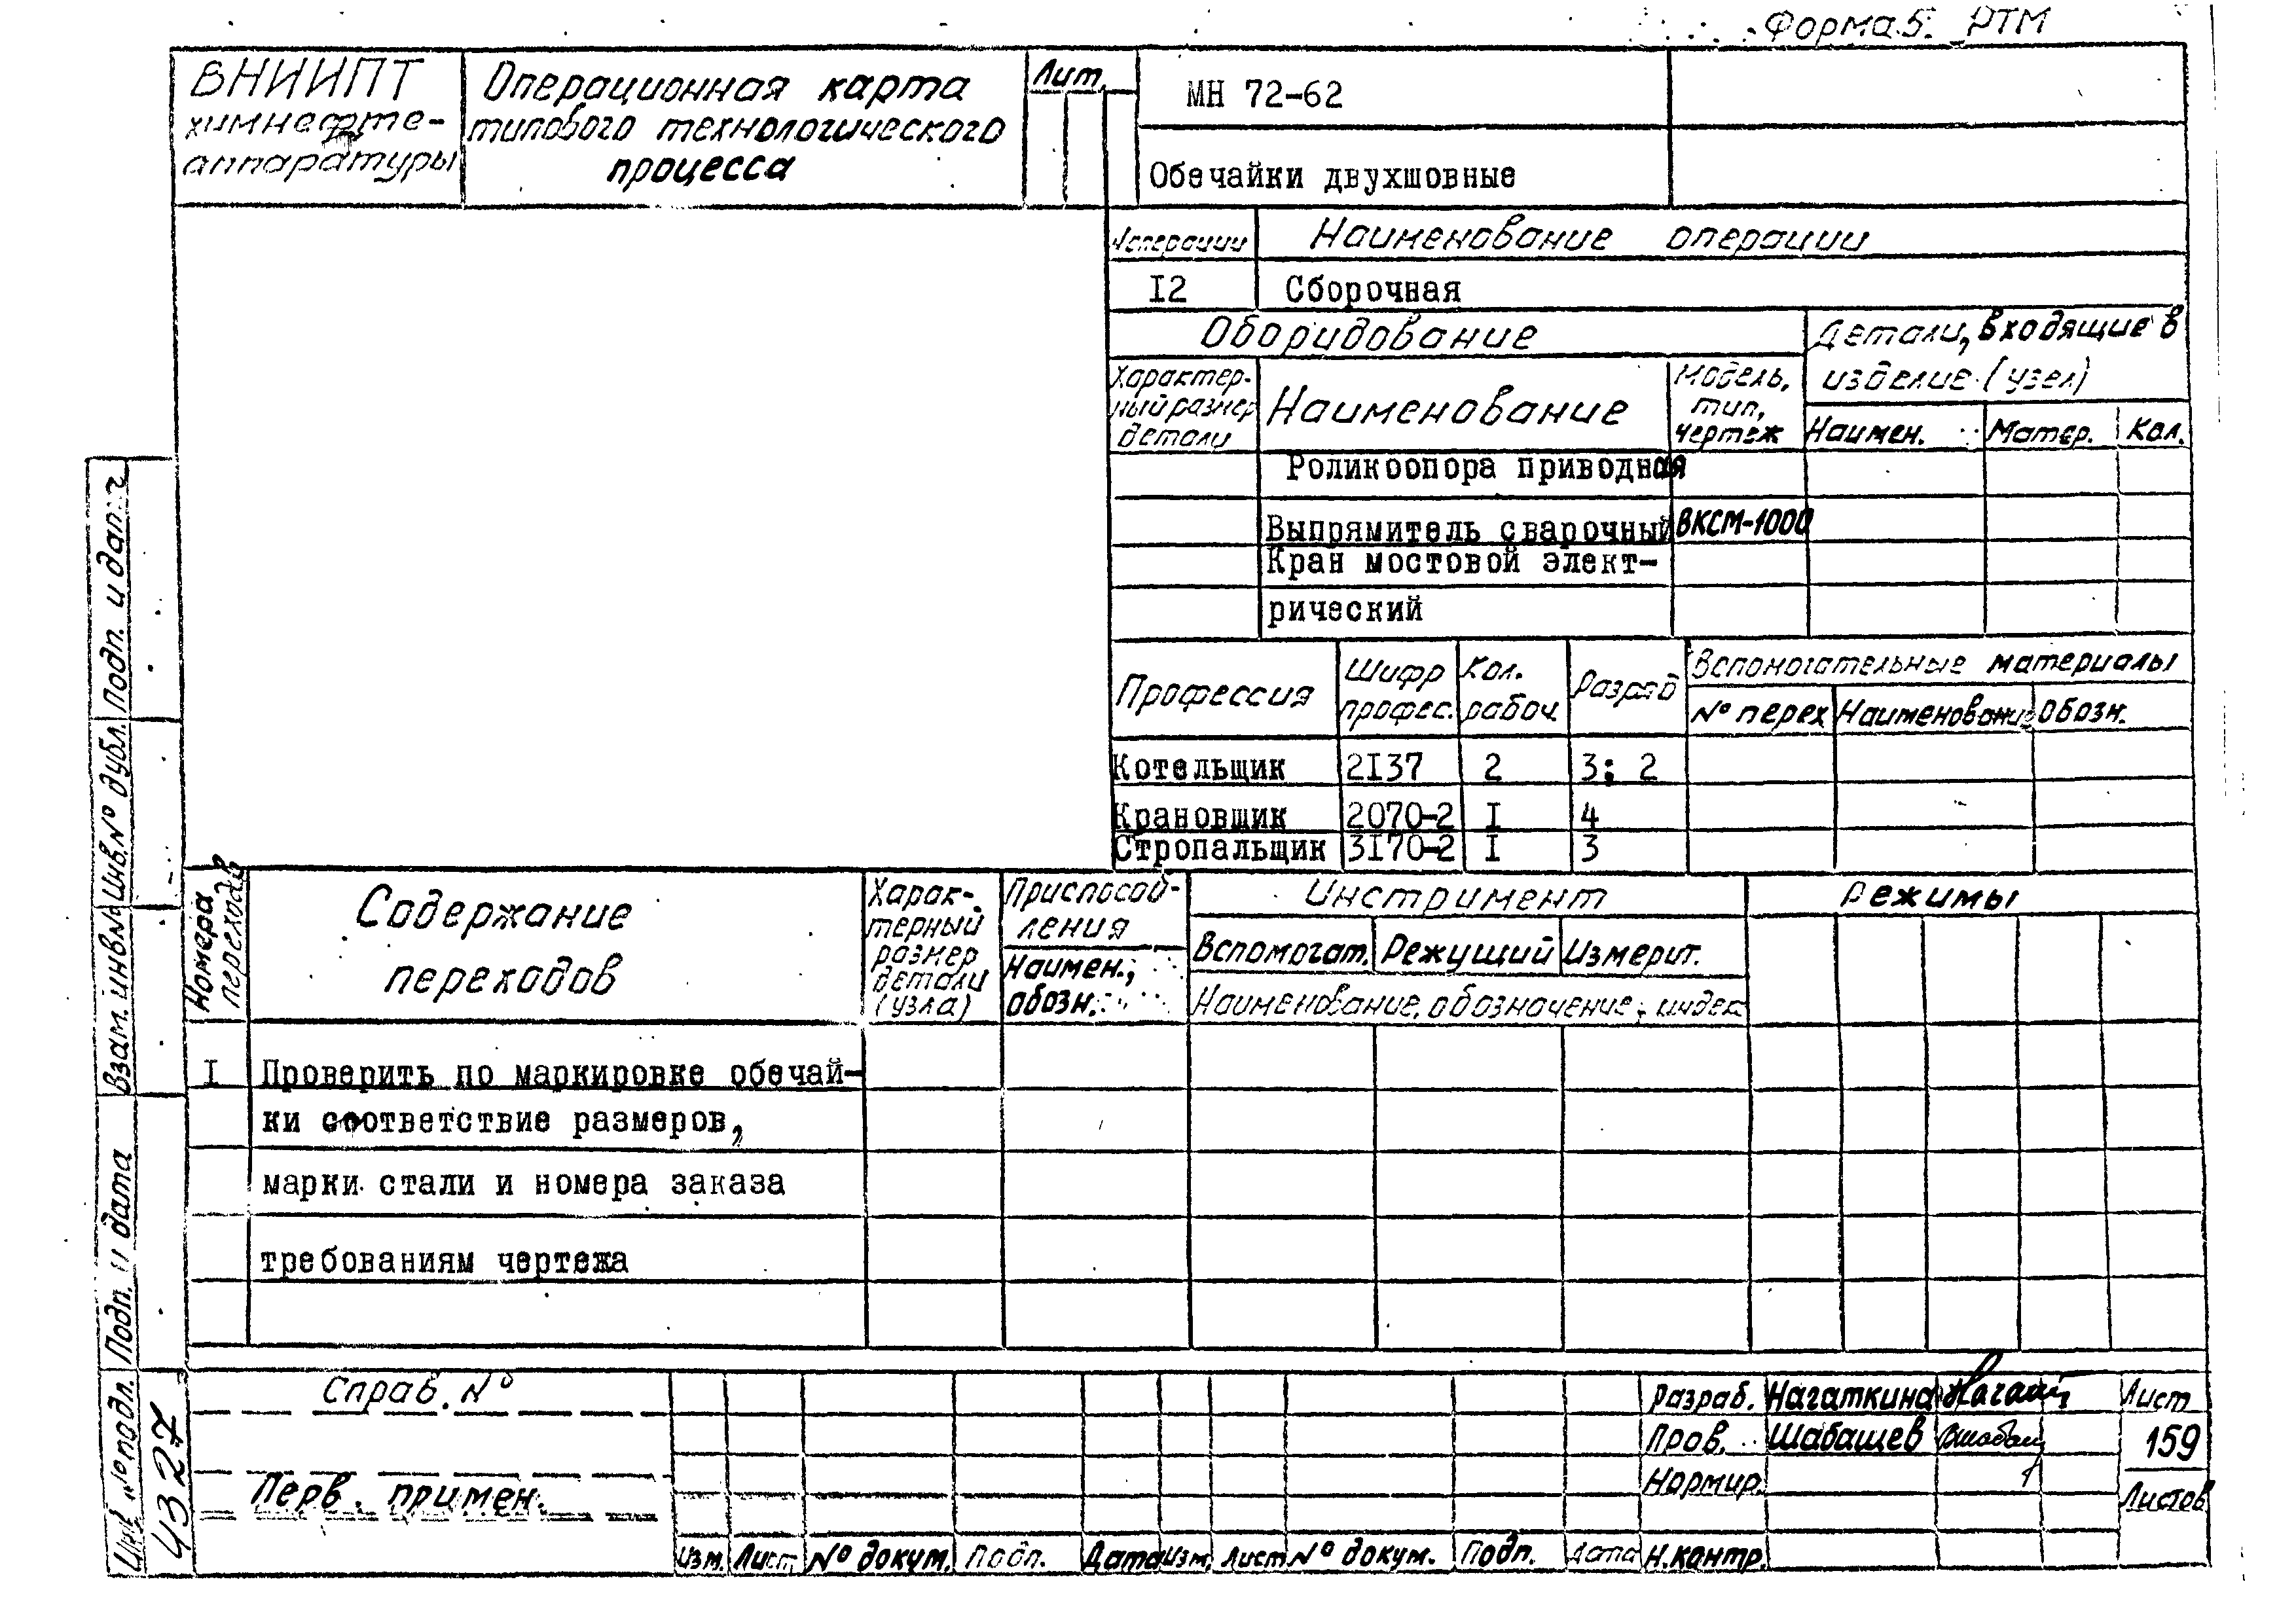 Форма 5. РТМ
ВНИИПТ
химнефте-
аппаратуры
Операционная карта
типового технологического
процесса
Лит.
МН 72-62
Обечайки двухшовные
№операции
Наименование операции
I2
Сборочная
Оборудование
Детали, входящие в
изделие (узел)
Характер-
ный размер
детали
Наименование
Модель,
тип,
чертеж
Наимен.
Матер.
Кол.
Роликоопора приводная
Выпрямитель сварочный
ВКСМ-1000
Кран мостовой элект-
рический
Профессия
Шифр
профес.
Кол.
рабоч.
Разряд
Вспомогательные материалы
№ перех
Наименование
Обозн.
Котельщик 2I37 2 3; 2
Крановщик 2070-2 I 4
Стропальщик 3I70-2 I 3
Номера
переходов
Содержание
переходов
Харак-
терный
размер
детали
(узла)
Приспособ-
ления
Наимен.,
обозн.
Инструмент
Вспомогат.
Режущий
Измерит.
Наименование, обозначение, индек
Режимы
I Проверить по маркировке обечай-
ки соответствие размеров,
марки стали и номера заказа
требованиям чертежа
Справ. №
Перв. примен.
Изм.
Лист
№ докум.
Подп.
Дата
Изм.
Лист
№ докум.
Подп.
Дата
Разраб. Нагаткина
Пров. Шабашев
Нормир.
Н.контр.
Лист
159
Листов
Подп. и дата
Инв.№ дубл.
Взам. инв.№
Подп. и дата
Инв. № подл.
4327